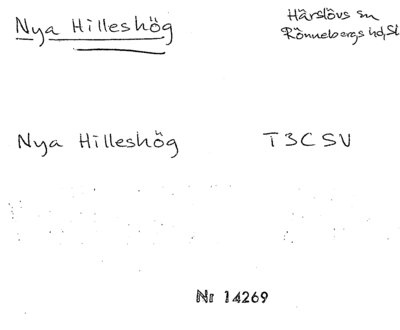 Nya Hilleshög
Härslövs sn
Rönnebergs hd, Sk
Nya Hilleshög T3CSV
Nr 14269